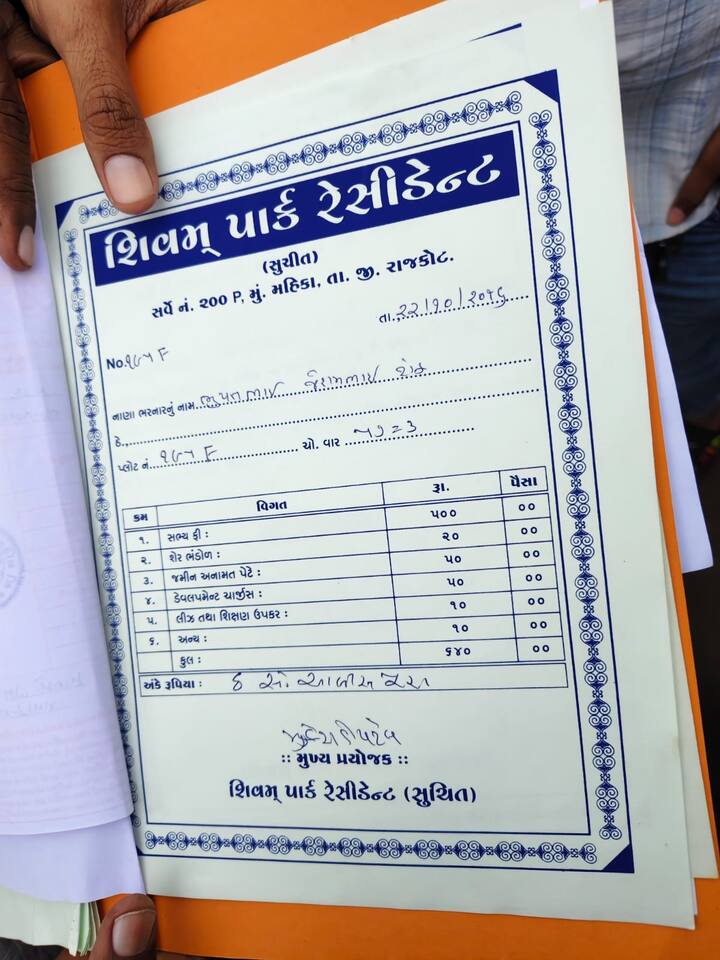 શિવમ્ પાર્ક રેસીડેન્ટ
(સુચીત)
સર્વે નં. ૨૦૦ P, મું. મહિકા, તા. જી. રાજકોટ.
તા. ૨૨/૧૦/૨૦૧૬
No.
નાણા ભરનારનું નામ
ઠે.
પ્લોટ નં. ચો. વાર
ક્રમ વિગત રૂા. પૈસા
૧. સભ્ય ફી : ૫૦૦ ૦૦
૨. શેર ભંડોળ : ૨૦ ૦૦
૩. જમીન અનામત પેટે : ૫૦ ૦૦
૪. ડેવલપમેન્ટ ચાર્જીસ : ૫૦ ૦૦
૫. લીઝ તથા શિક્ષણ ઉપકર : ૧૦ ૦૦
૬. અન્ય : ૧૦ ૦૦
કુલ : ૬૪૦ ૦૦
અંકે રૂપિયા :
:: મુખ્ય પ્રયોજક ::
શિવમ્ પાર્ક રેસીડેન્ટ (સુચિત)